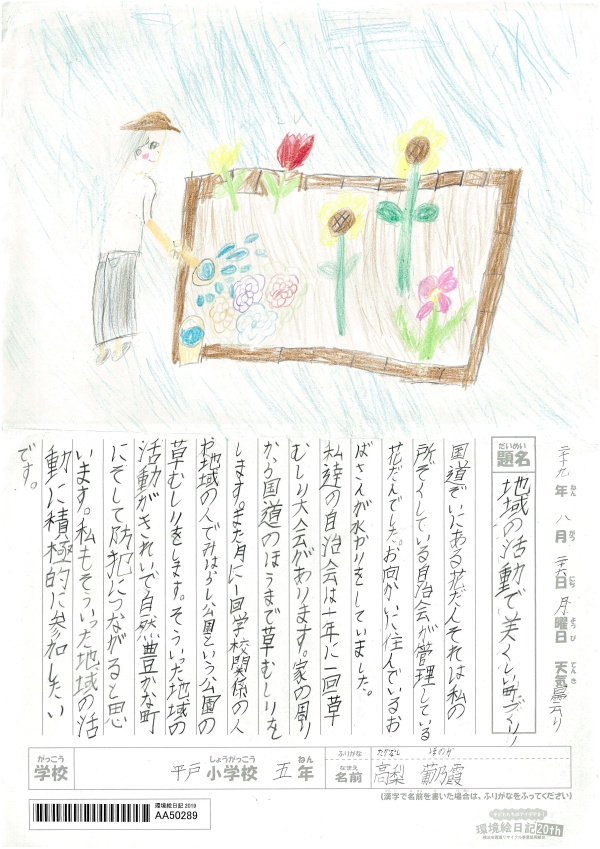 二十九年 八月 二十六日 月曜日 天気 曇り
ねん がつ にち ようび てんき
だいめい
題名
地域の活動で美しい町づくり
国道ぞいにある花だんそれは私の
所ぞくしている自治会が管理している
花だんでした。お向かいに住んでいるお
ばさんが水やりをしていました。
私達の自治会は一年に一回草
むしり大会があります。家の周り
から国道のほうまで草むしりを
します。また月に一回学校関係の人
や地域の人でみはらし公園という公園の
草むしりをします。そういった地域の
活動がきれいで自然豊かな町
にそして防犯につながると思
います。私もそういった地域の活
動に積極的に参加したい
です。
がっこう
学校
平戸 小学校 五年
しょうがっこう ねん
ふりがな
たかなし ほのか
なまえ
名前
高梨 葡乃霞
(漢字で名前を書いた場合は、ふりがなをふってください)
環境絵日記 2019
AA50289
環境絵日記 20th